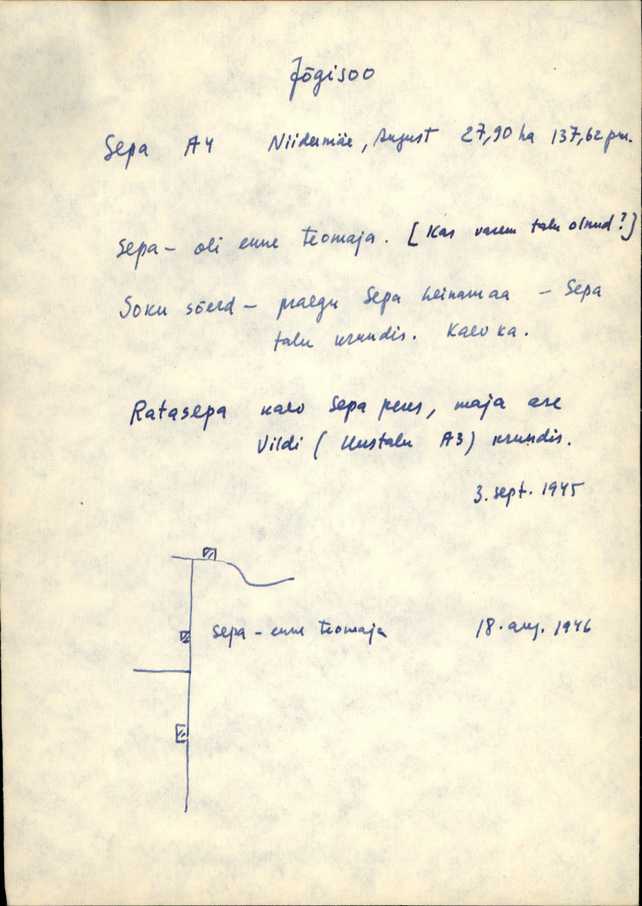 Jõgisoo
Sepa A4 Niidermäe, August 27,90 ha 137,62 pm.
Sepa - oli enne teomaja. [Kas varem talu olnud?]
Soku sõerd - praegu Sepa heinamaa - Sepa
talu krundis. Kaev ka.
Ratasepa kaev Sepa peres, maja ase
Vildi (Uustalu A3) krundis.
3. sept. 1945
Sepa - enne teomaja 18. aug. 1946